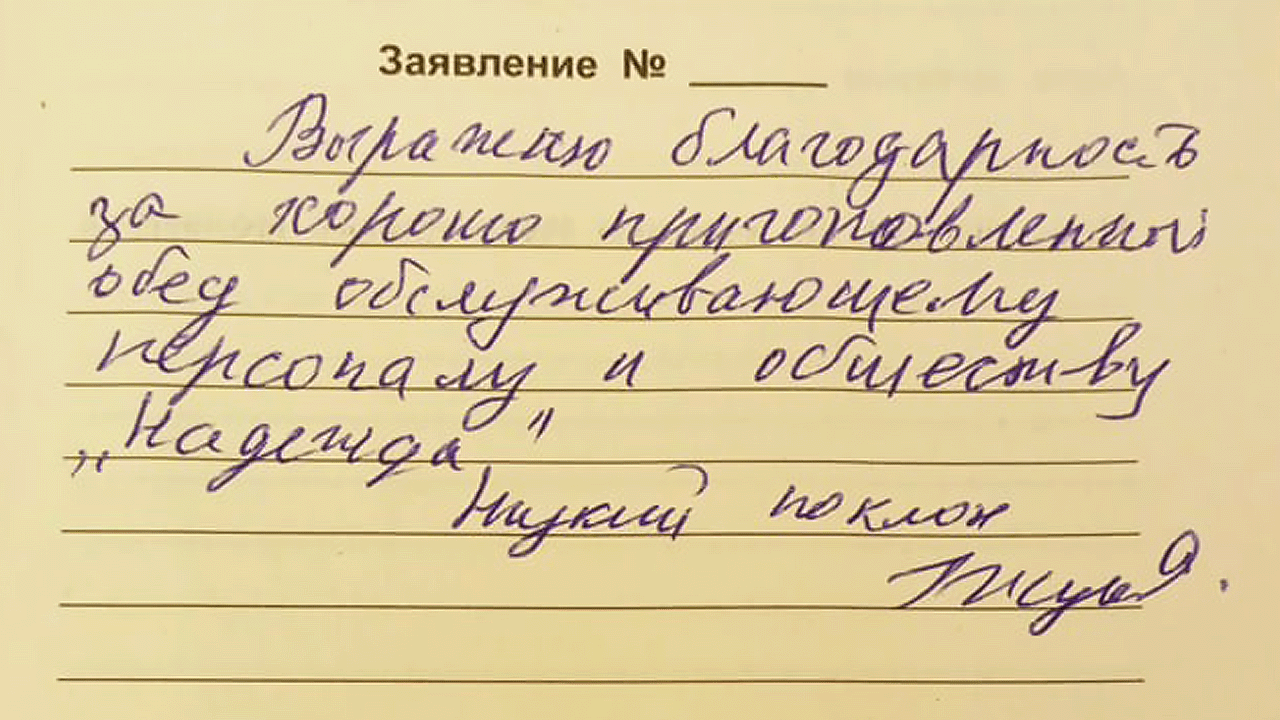 Заявление № ____
Выражаю благодарность
за хорошо приготовленный
обед обслуживающему
персоналу и обществу
„Надежда"
Низкий поклон